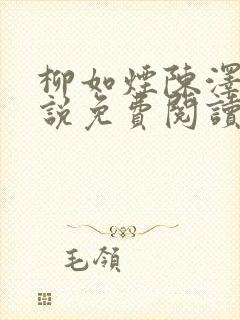 柳如煙陳澤
說免費閱讀
毛領